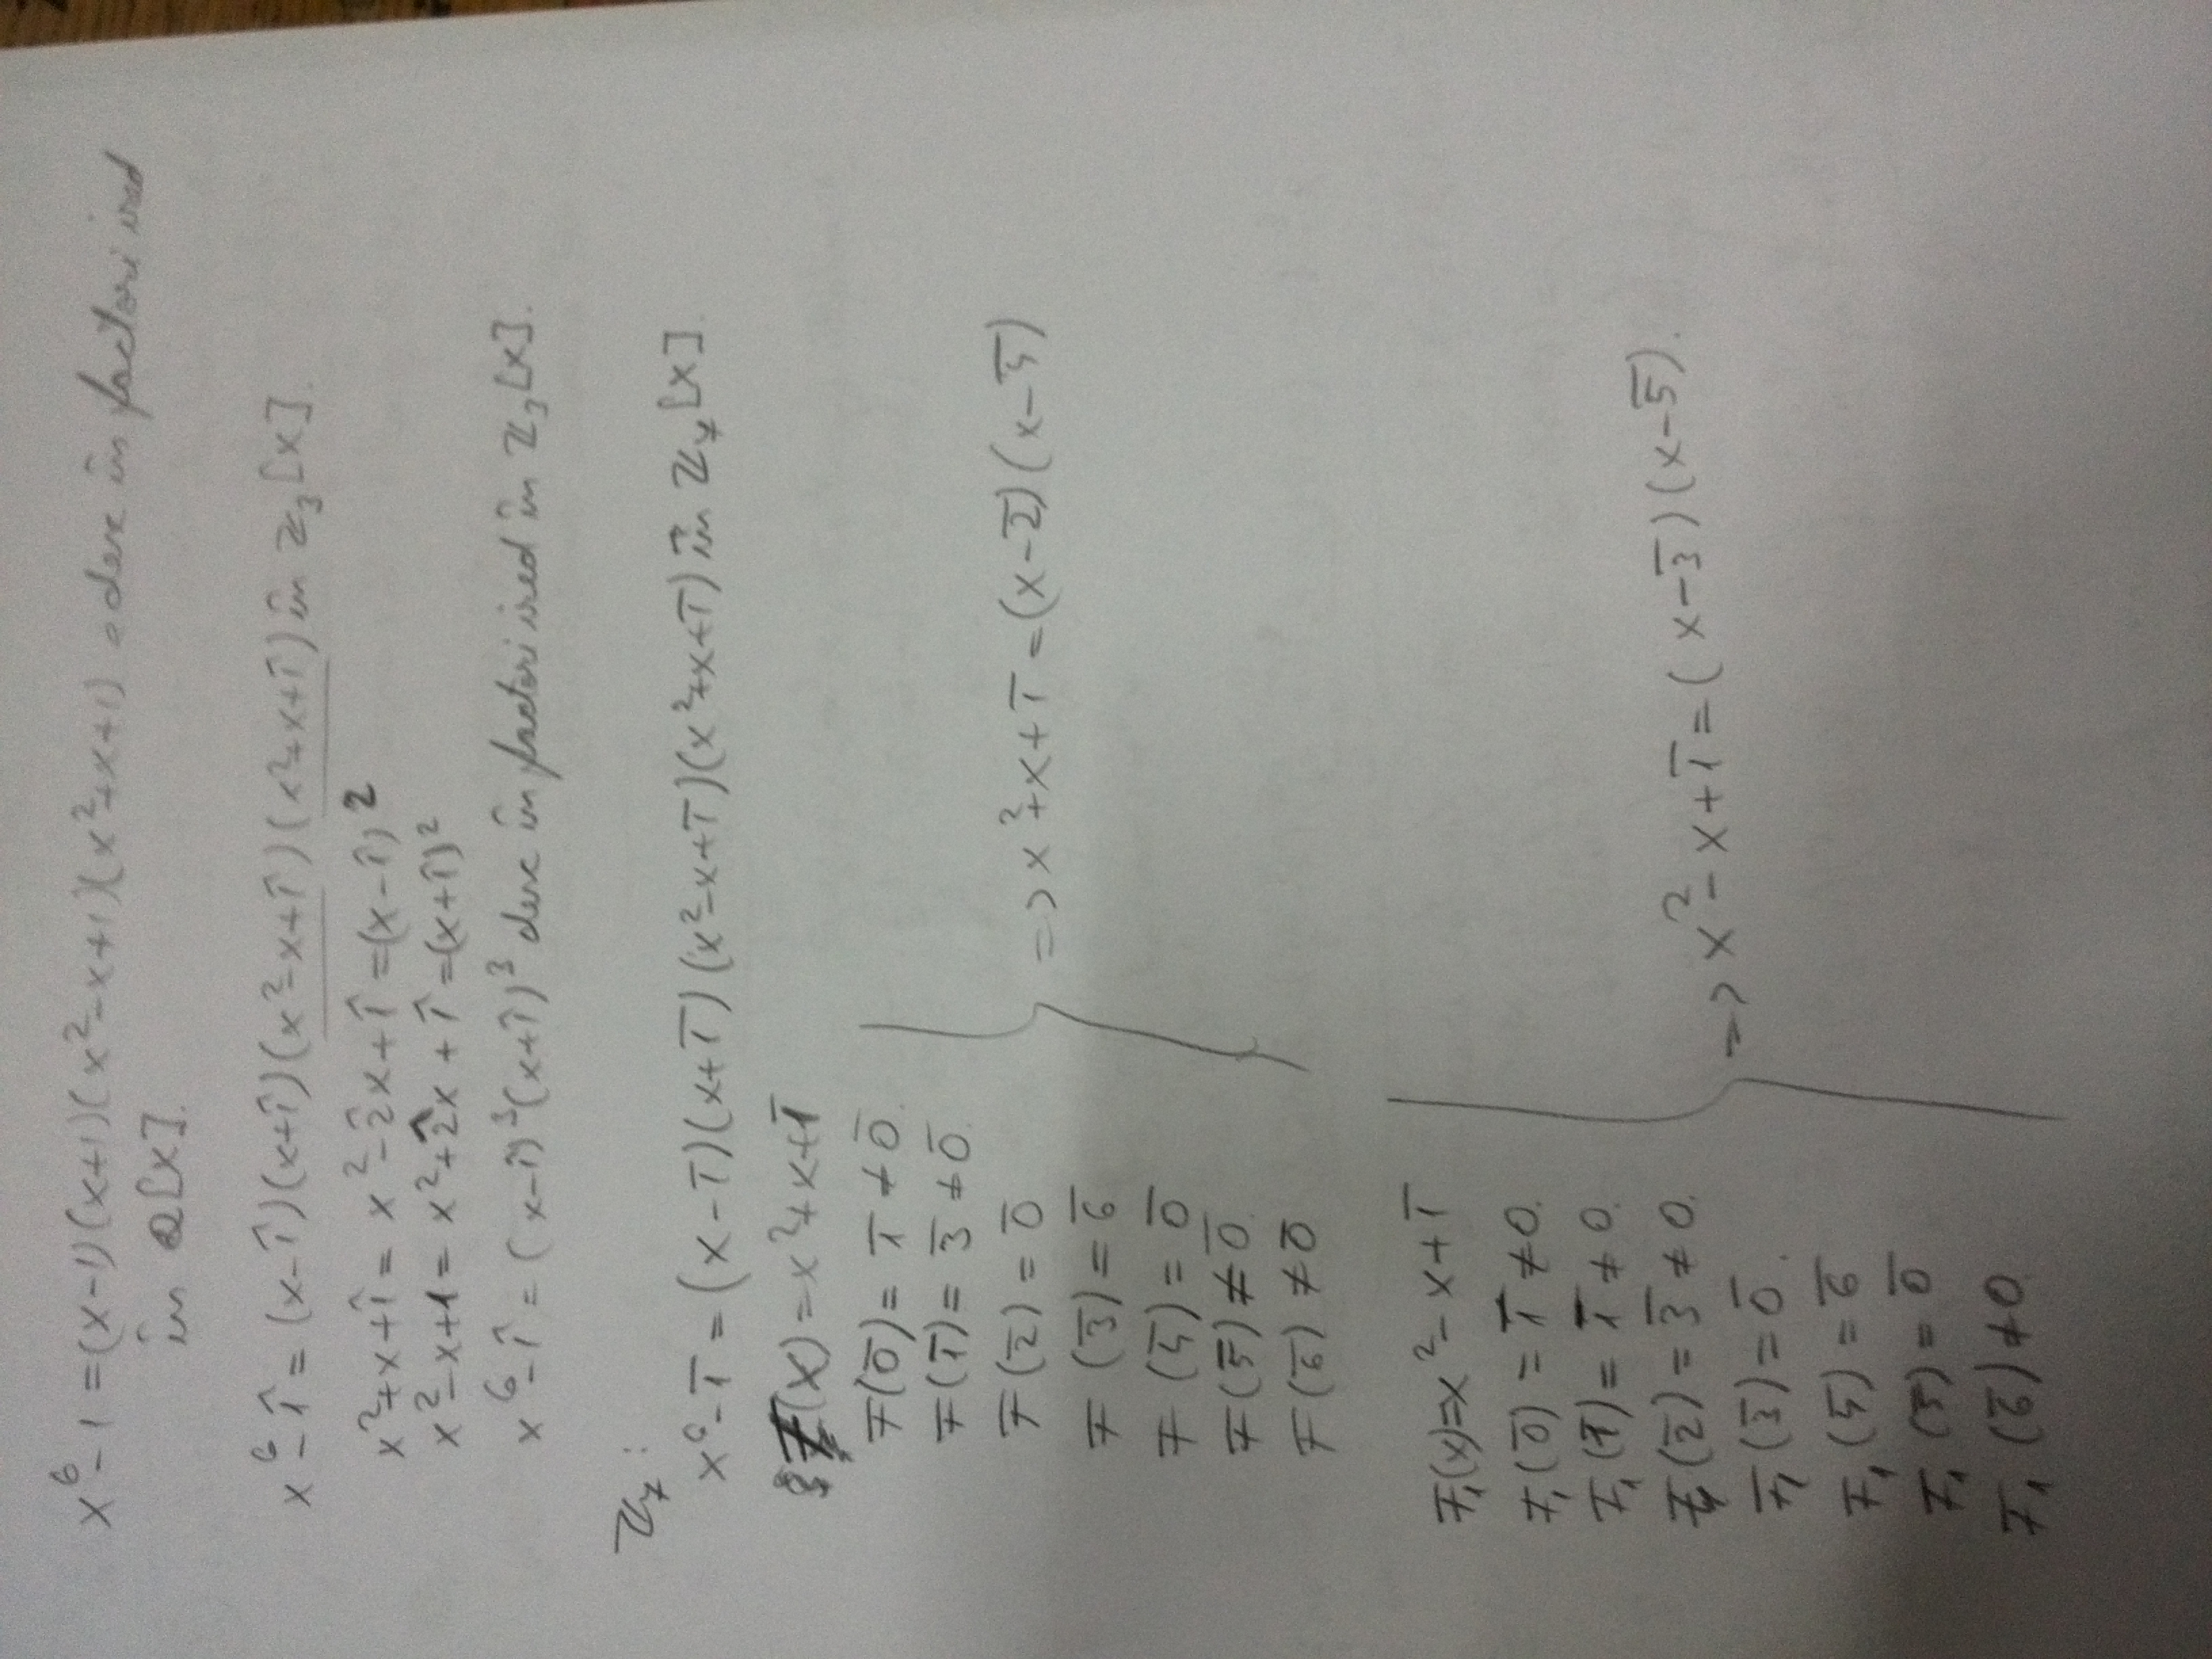 x⁶-1=(x-1)(x+1)(x²-x+1)(x²+x+1) desc în factori ired
în Q[x].
x⁶-1̂=(x-1̂)(x+1̂)(x²-x+1̂)(x²+x+1̂) în Z₃[x].
x²+x+1̂=x²-2̂x+1̂=(x-1̂)²
x²-x+1=x²+2̂x+1̂=(x+1̂)²
x⁶-1̂=(x-1̂)³(x+1̂)³ desc în factori ired în Z₃[x].
Z₇:
x⁶-1̅=(x-1̅)(x+1̅)(x²-x+1̅)(x²+x+1̅) în Z₇[x].
F(x)=x²+x+1̅
F(0̅)=1̅≠0̅.
F(1̅)=3̅≠0̅.
F(2̅)=0̅
F(3̅)=6̅
F(4̅)=0̅
F(5̅)≠0̅
F(6̅)≠0̅
=> x²+x+1̅=(x-2̅)(x-4̅)
F₁(x)=x²-x+1̅
F₁(0̅)=1̅≠0.
F₁(1̅)=1̅≠0.
F₁(2̅)=3̅≠0.
F₁(3̅)=0̅.
F₁(4̅)=6̅
F₁(5̅)=0̅
F₁(6̅)≠0
=> x²-x+1̅=(x-3̅)(x-5̅).